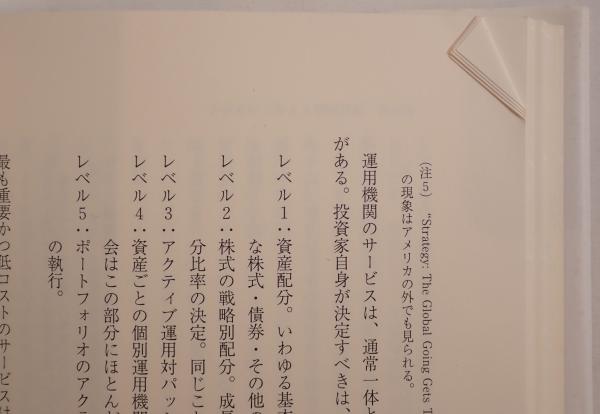 (注5) "Strategy: The Global Going Gets T
の現象はアメリカの外でも見られる。
運用機関のサービスは、通常一体と
がある。投資家自身が決定すべきは、
レベル1:資産配分。いわゆる基本
な株式・債券・その他の
レベル2:株式の戦略別配分。成長
分比率の決定。同じこと
レベル3:アクティブ運用対パッシ
レベル4:資産ごとの個別運用機関
会はこの部分にほとんど
レベル5:ポートフォリオのアクテ
の執行。
最も重要かつ低コストのサービスは